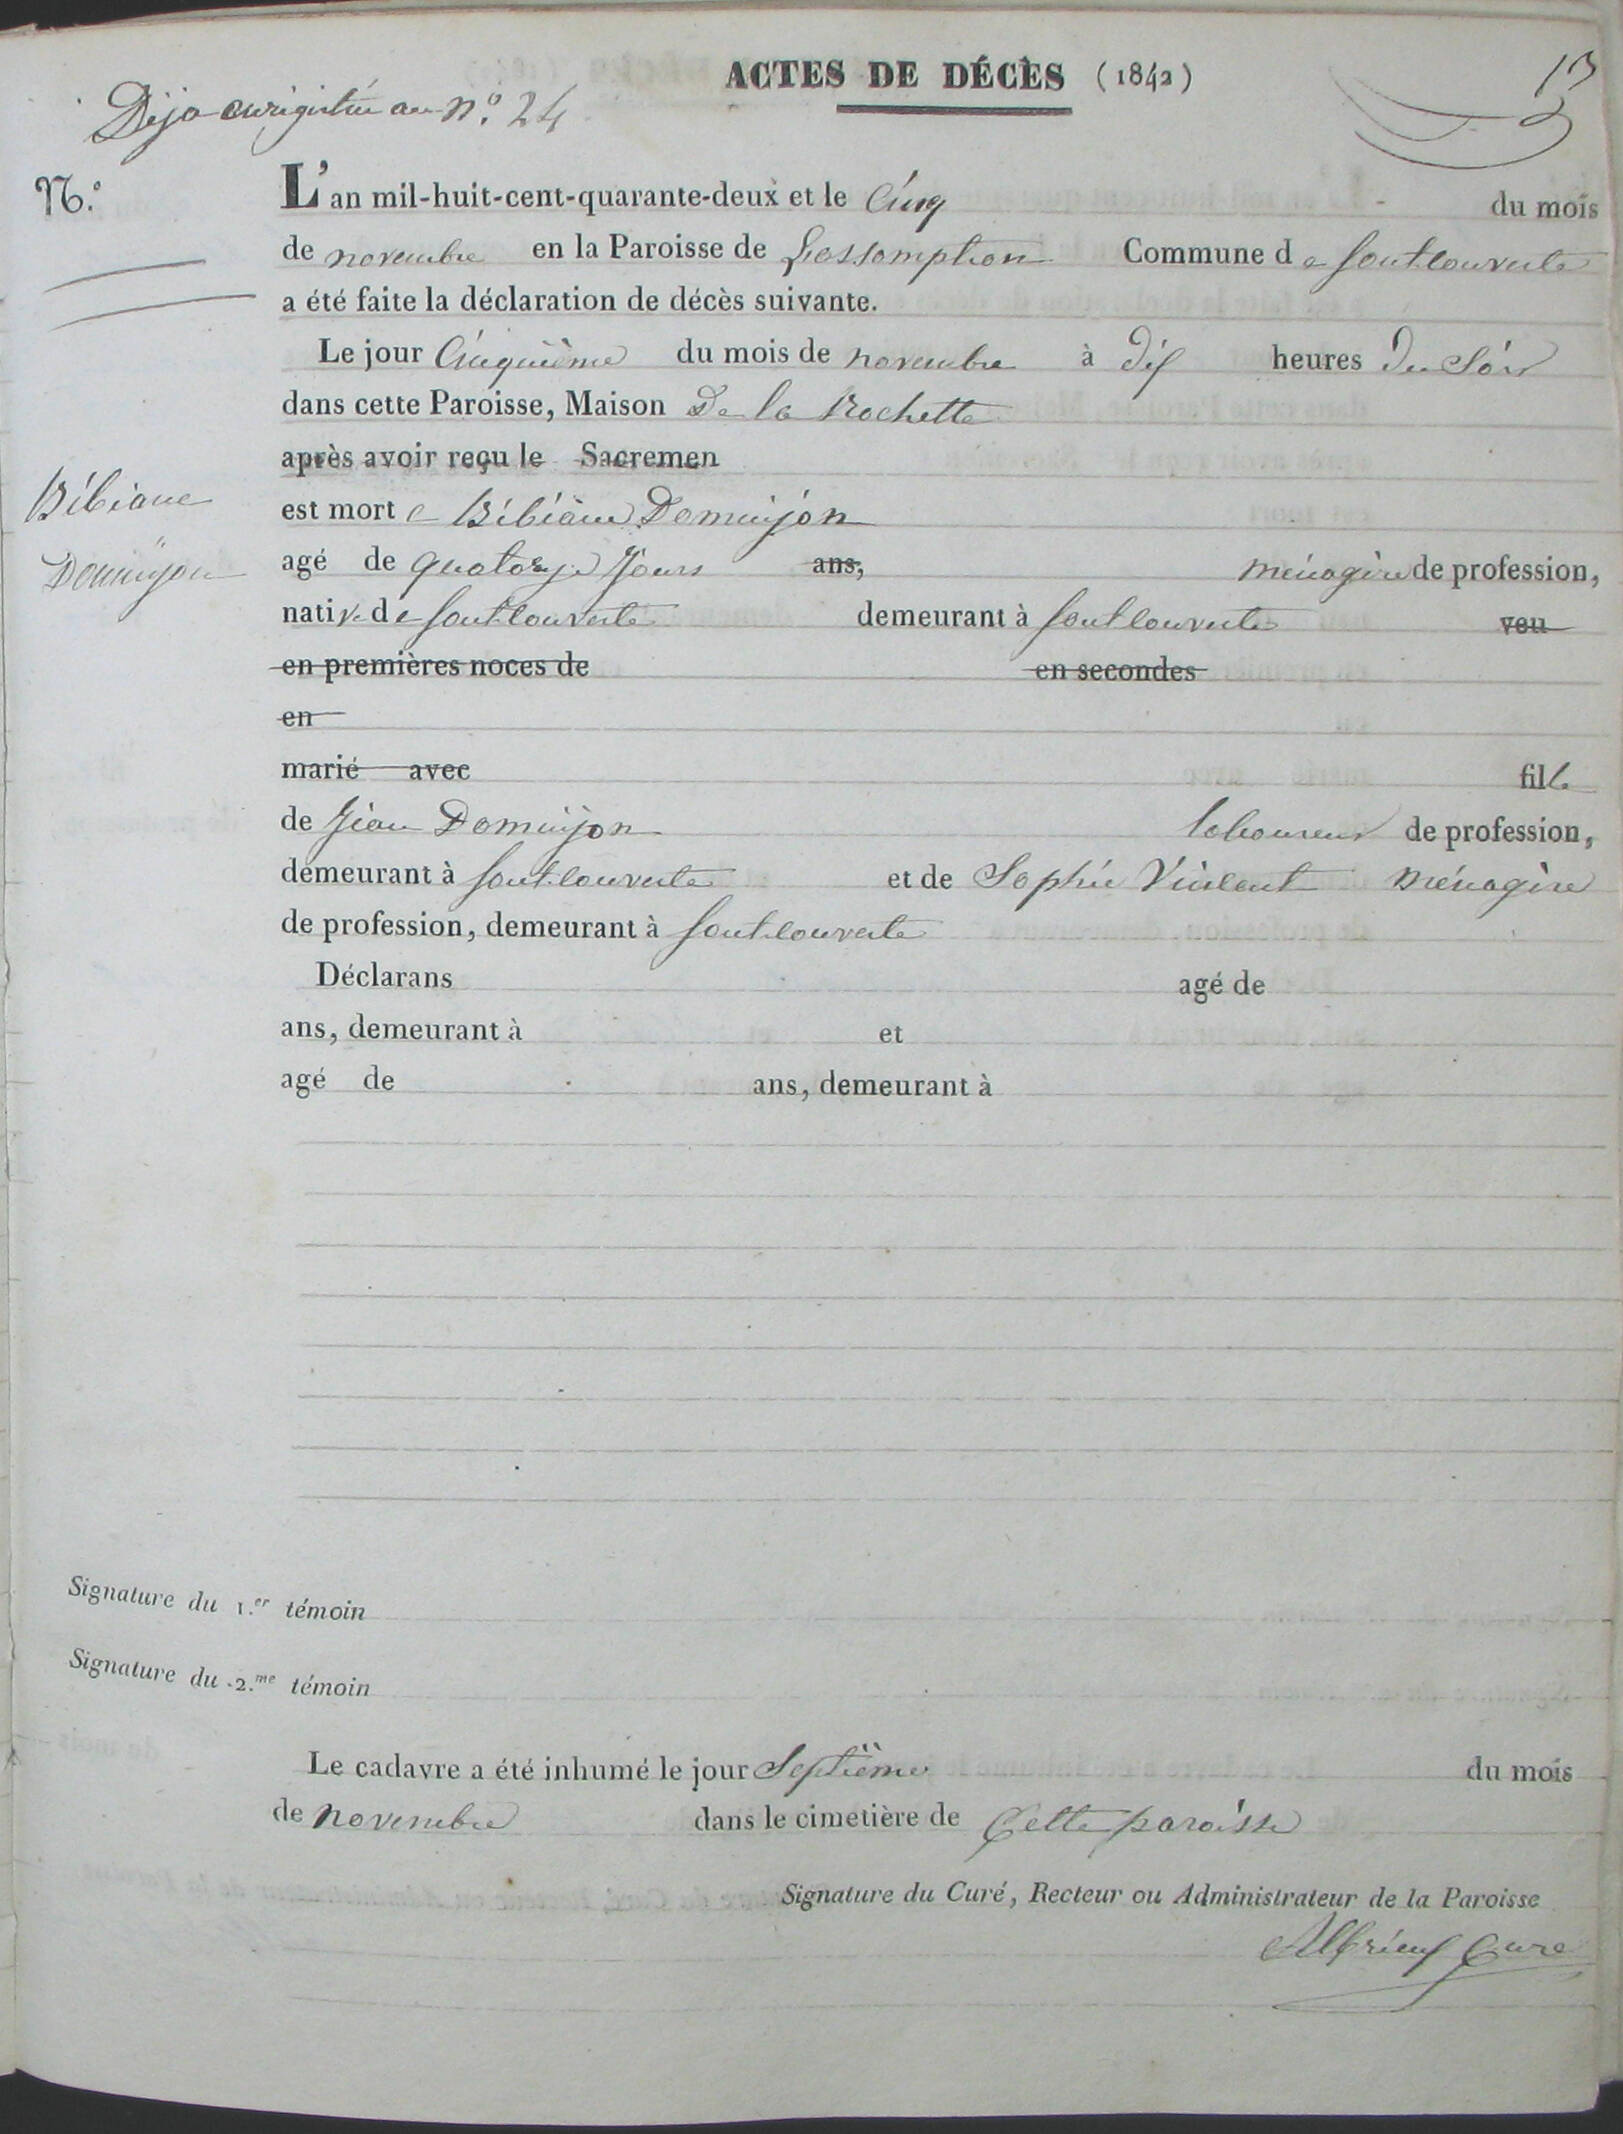 ACTES DE DÉCÈS (1842)
13
Déja enrigistrée au N.º 24
N.º
L'an mil-huit-cent-quarante-deux et le Cinq du mois
de novembre en la Paroisse de Lassomption Commune de Fontcouverte
a été faite la déclaration de décès suivante.
Le jour Cinquième du mois de novembre à dix heures du Soir
dans cette Paroisse, Maison De la Rochette
après avoir reçu le Sacremen
Bibiane
Dominjon
est morte Bibiane Dominjon
agé de quatorze Jours ans, ménagère de profession,
native de Fontcouverte demeurant à Fontcouverte veu
en premières noces de en secondes
en
marié avec fille
de Jean Dominjon laboureur de profession,
demeurant à Fontcouverte et de Sophie Vincent ménagère
de profession, demeurant à Fontcouverte
Déclarans agé de
ans, demeurant à et
agé de ans, demeurant à
Signature du 1.er témoin
Signature du 2.me témoin
Le cadavre a été inhumé le jour Septième du mois
de novembre dans le cimetière de Cette paroisse
Signature du Curé, Recteur ou Administrateur de la Paroisse
Albrieux Curé